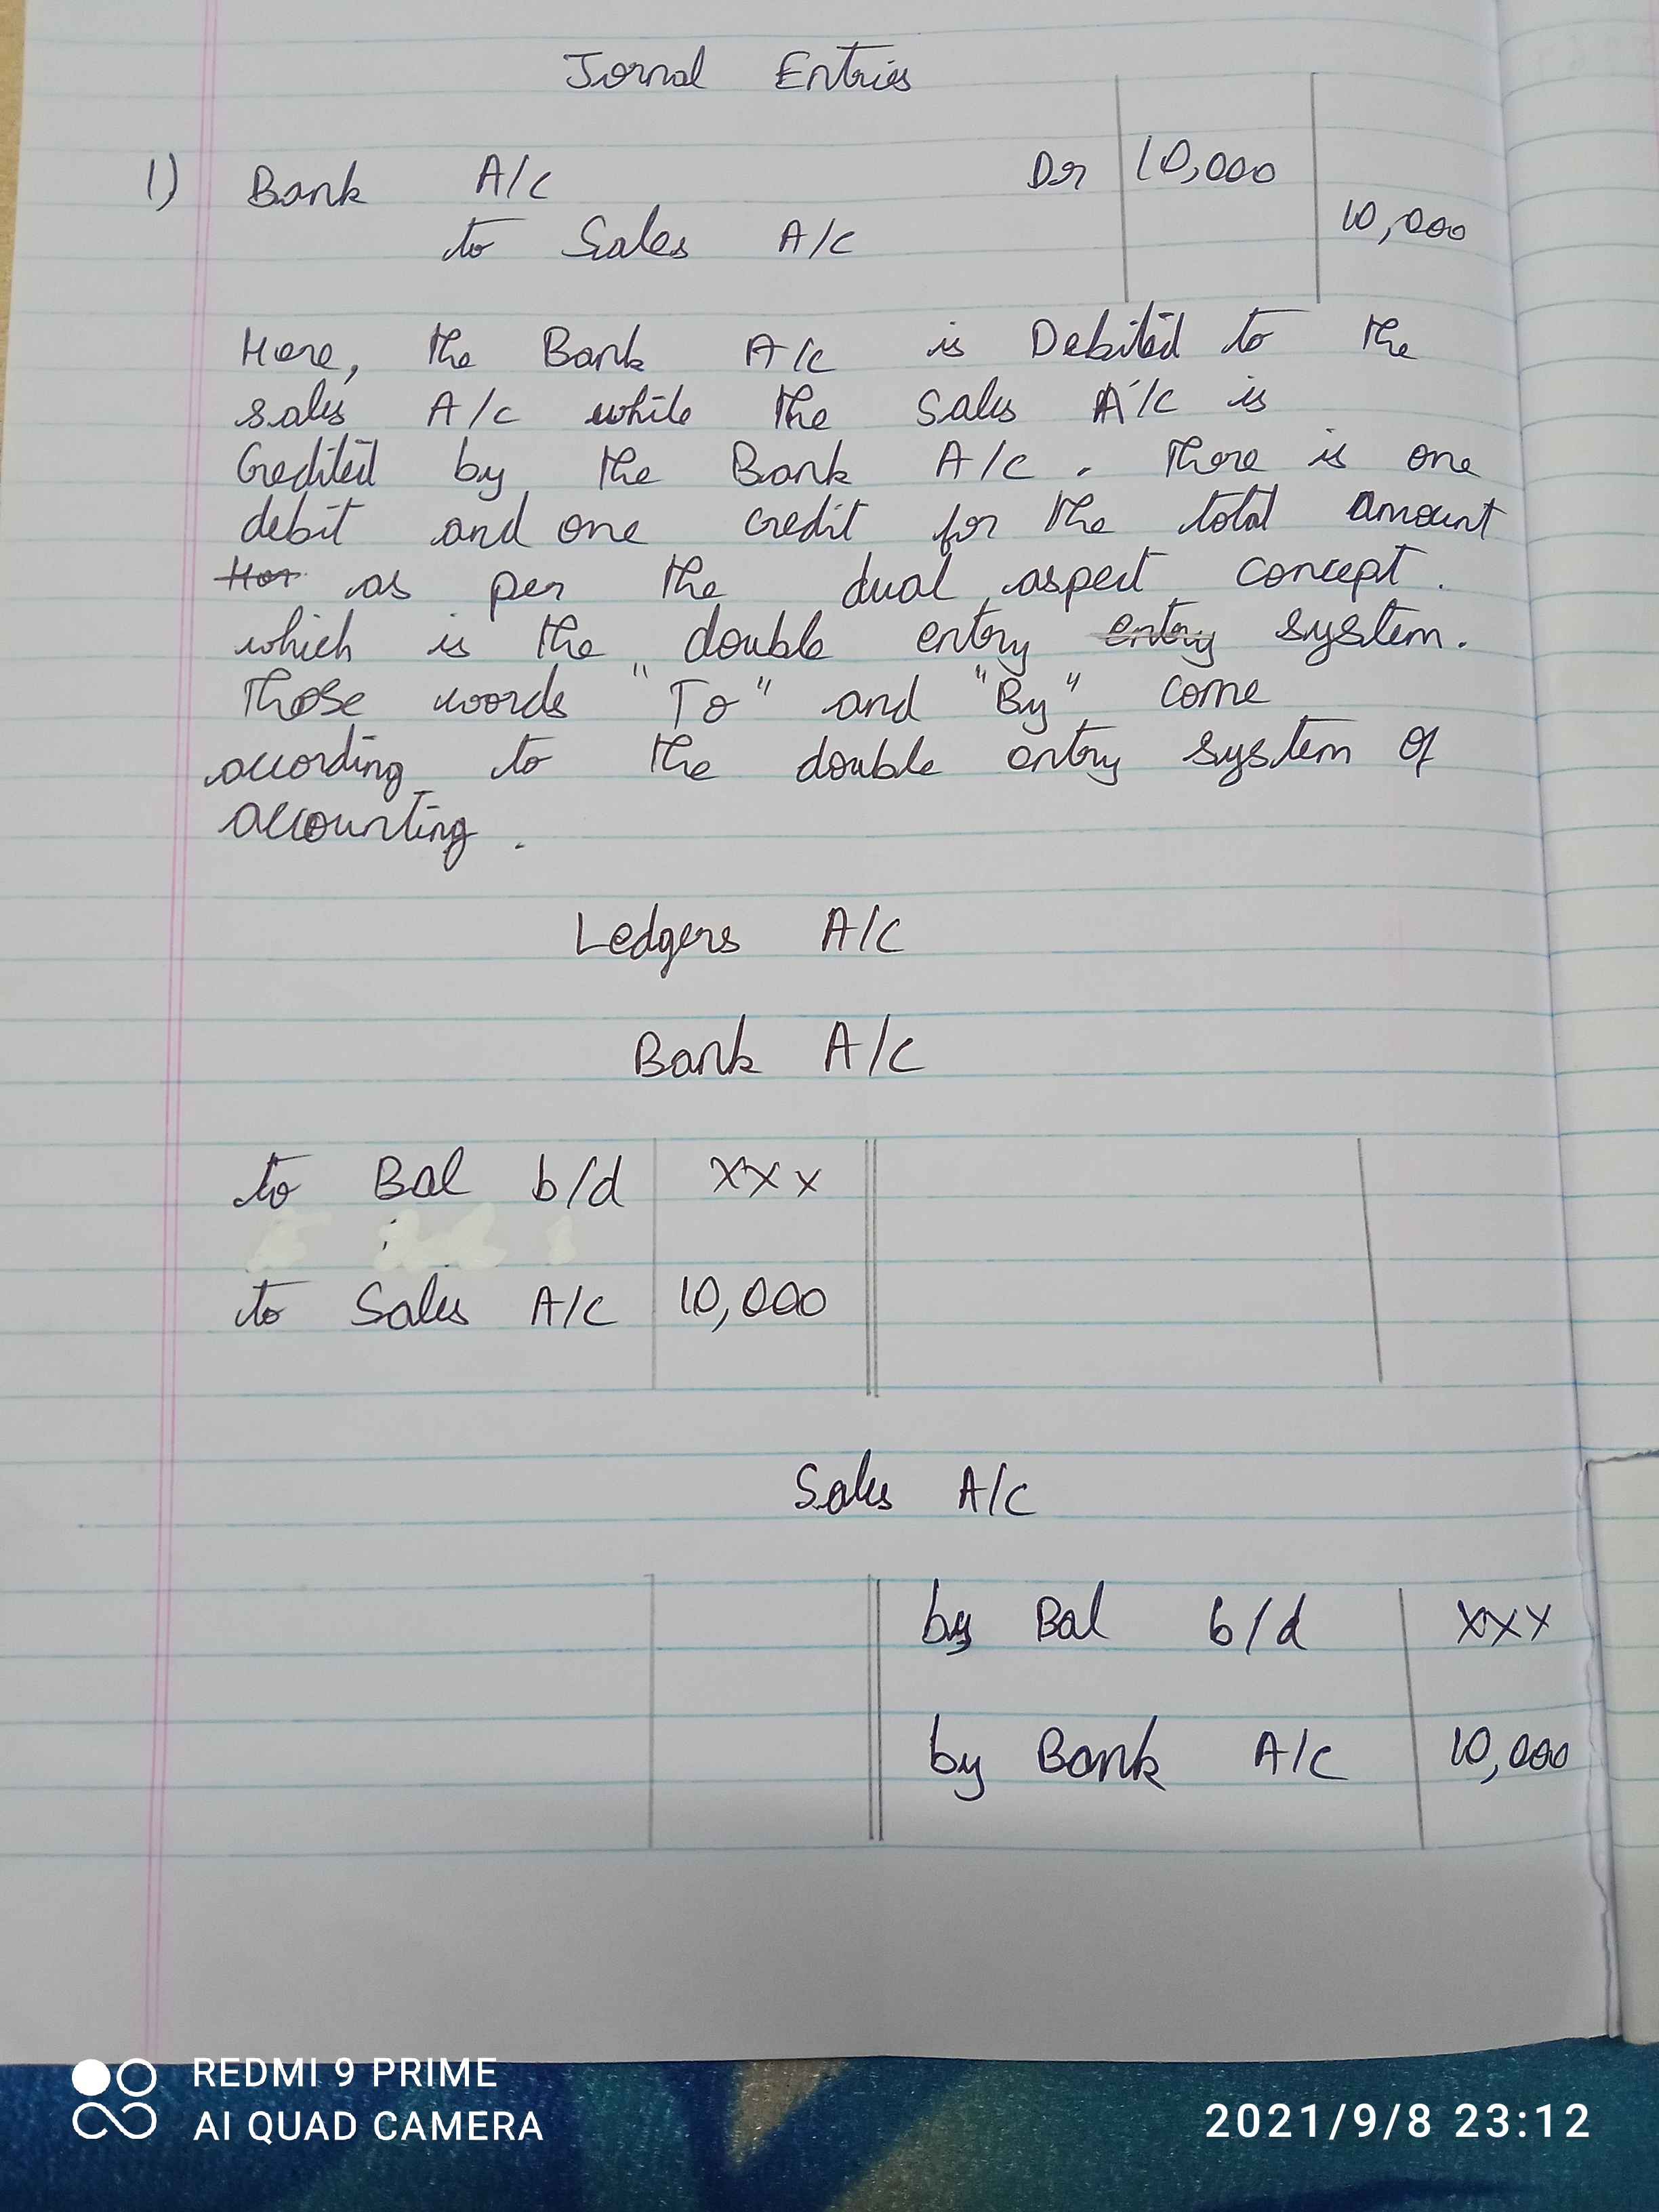 Jornal Entries
1) Bank A/c Dr 10,000
to Sales A/c 10,000
Here, the Bank A/c is Debited to the
sales A/c while the Sales A/c is
Credited by the Bank A/c. There is one
debit and one credit for the total amount
Her as per the dual aspect concept.
which is the double entry entry system.
Those words "To" and "By" come
according to the double entry system of
accounting.
Ledgers A/c
Bank A/c
to Bal b/d xxx
to Sales A/c 10,000
Sales A/c
by Bal b/d xxx
by Bank A/c 10,000
REDMI 9 PRIME
AI QUAD CAMERA
2021/9/8 23:12